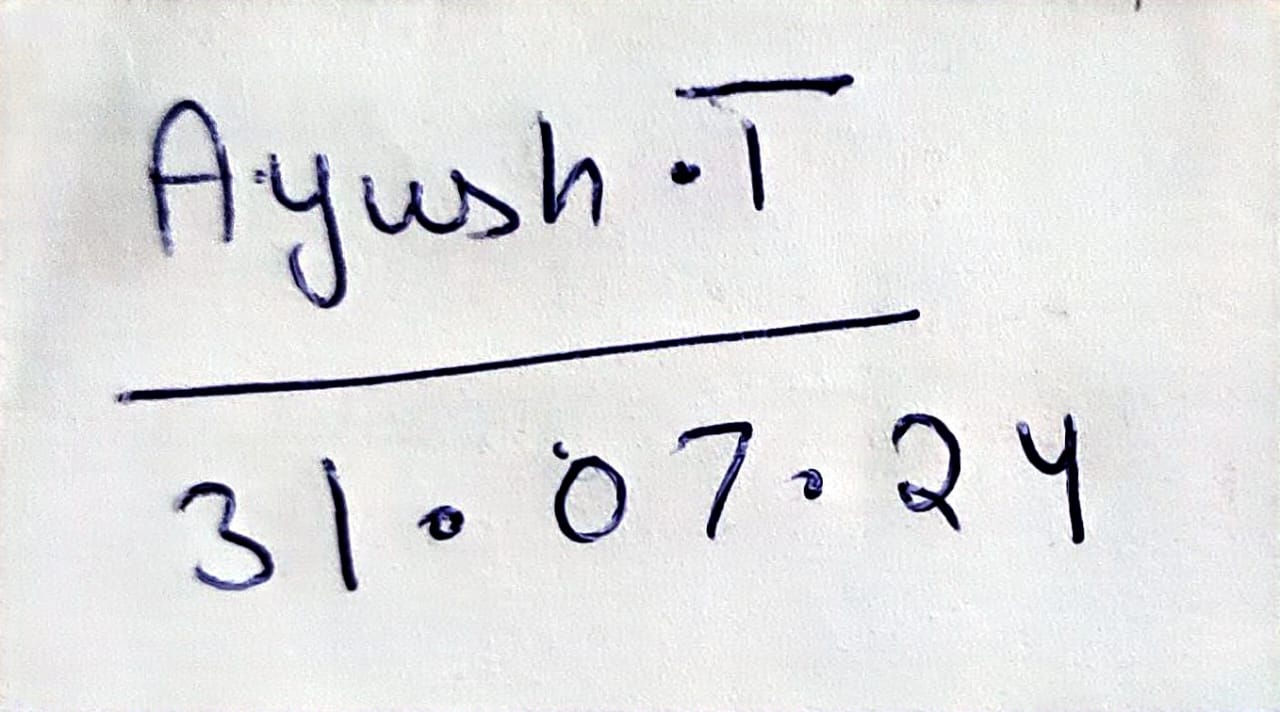 Ayush.T
31.07.24